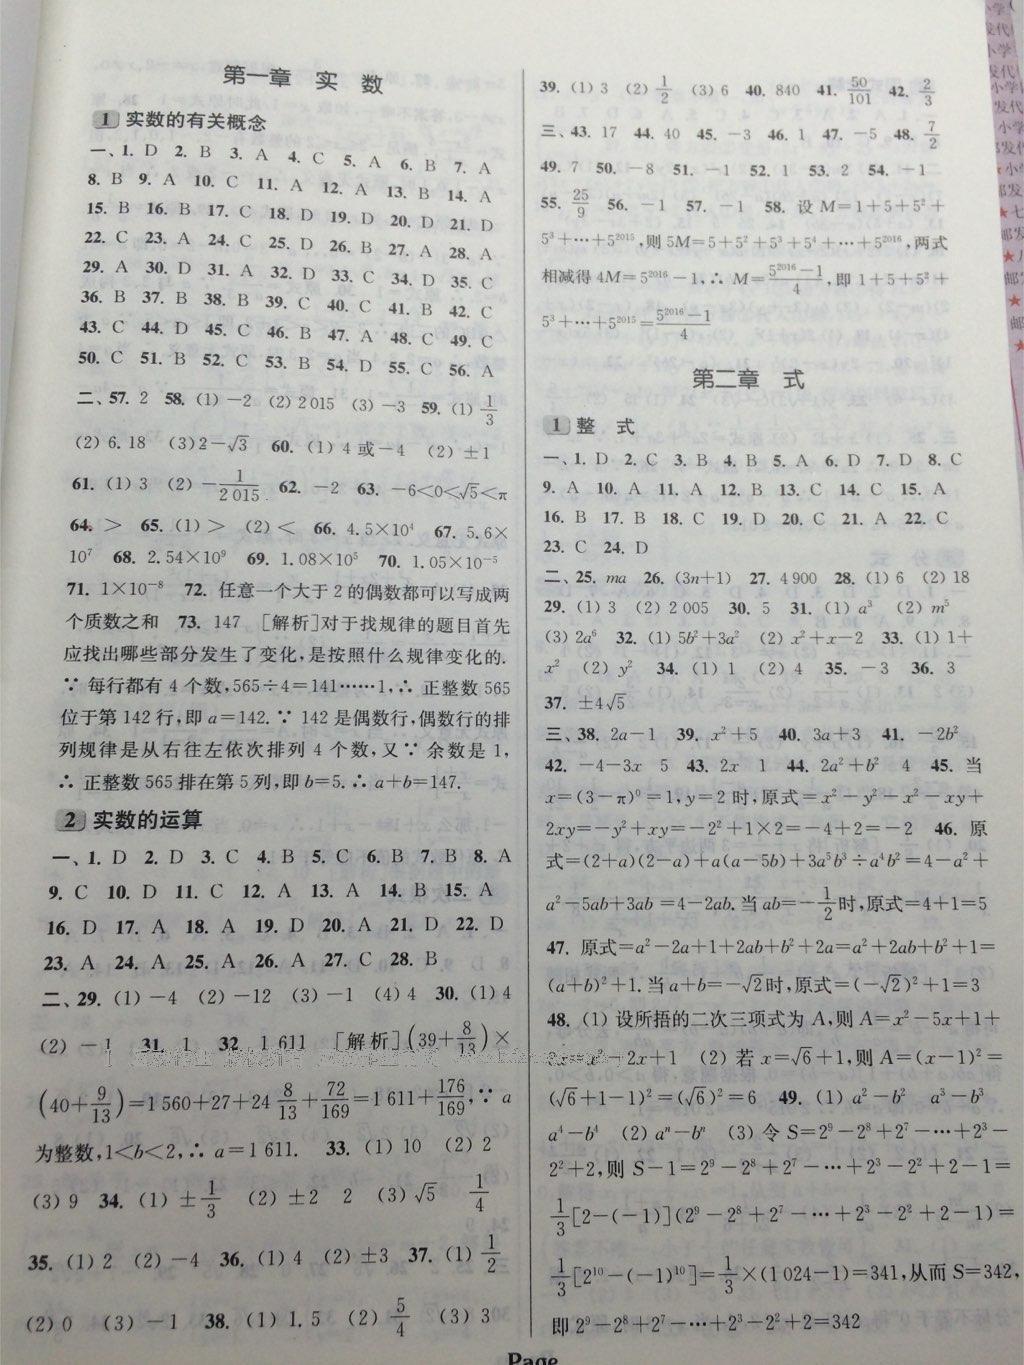 第一章 实 数
1 实数的有关概念
一、1. D 2. B 3. A 4. C 5. A 6. B 7. A
8. B 9. A 10. C 11. A 12. A 13. B 14. A
15. B 16. B 17. C 18. D 19. D 20. D 21. D
22. C 23. A 24. C 25. D 26. B 27. A 28. A
29. A 30. D 31. A 32. D 33. C 34. D 35. C
36. B 37. B 38. B 39. C 40. C 41. B 42. C
43. C 44. D 45. C 46. B 47. A 48. C 49. C
50. C 51. B 52. C 53. B 54. D 55. C 56. A
二、57. 2 58. (1)－2 (2)2 015 (3)－3 59. (1) 1/3
(2) 6.18 (3)2－√3 60. (1) 4 或－4 (2) ±1
61. (1) 3 (2) －1/2 015 62. －2 63. －6<0<√5<π
64. > 65. (1) > (2) < 66. 4.5×10⁴ 67. 5.6×
10⁷ 68. 2.54×10⁹ 69. 1.08×10⁵ 70. 1.05×10⁻⁵
71. 1×10⁻⁸ 72. 任意一个大于 2 的偶数都可以写成两
个质数之和 73. 147 [解析]对于找规律的题目首先
应找出哪些部分发生了变化,是按照什么规律变化的.
∵ 每行都有 4 个数,565÷4=141……1,∴ 正整数 565
位于第 142 行,即 a=142. ∵ 142 是偶数行,偶数行的排
列规律是从右往左依次排列 4 个数,又∵ 余数是 1,
∴ 正整数 565 排在第 5 列,即 b=5. ∴ a+b=147.
2 实数的运算
一、1. D 2. D 3. C 4. B 5. C 6. B 7. B 8. A
9. C 10. D 11. C 12. A 13. A 14. B 15. A
16. D 17. A 18. A 19. D 20. A 21. D 22. D
23. A 24. A 25. A 26. A 27. C 28. B
二、29. (1)－4 (2)－12 (3)－1 (4) 4 30. (1) 4
(2) －1 31. 1 32. 1 611 [解析](39+8/13)×
(40+9/13)=1 560+27+24 8/13+72/169=1 611+176/169,∵ a
为整数,1<b<2,∴ a=1 611. 33. (1) 10 (2) 2
(3) 9 34. (1) ±1/3 (2) ±2 2 (3) √5 1/4
35. (1) 2 (2) －4 36. (1) 4 (2) ±3 37. (1) 1/2
(2) 0 (3) －1 38. (1) 1.5 (2) 5/4 (3) 3
39. (1) 3 (2) 1/2 (3) 6 40. 840 41. 50/101 42. 2/3
三、43. 17 44. 40 45. －3 46. 1 47. －5 48. 7/2
49. 7 50. －8 51. －1 52. 1 53. 2 54. －1
55. 25/9 56. －1 57. －1 58. 设 M=1+5+5²+
5³+…+5²⁰¹⁵,则 5M=5+5²+5³+5⁴+…+5²⁰¹⁶,两式
相减得 4M=5²⁰¹⁶－1,∴ M=(5²⁰¹⁶－1)/4,即 1+5+5²+
5³+…+5²⁰¹⁵=(5²⁰¹⁶－1)/4
第二章 式
1 整 式
一、1. D 2. C 3. B 4. B 5. A 6. D 7. D 8. C
9. A 10. A 11. A 12. B 13. C 14. C 15. A
16. B 17. B 18. C 19. D 20. C 21. A 22. C
23. C 24. D
二、25. ma 26. (3n+1) 27. 4 900 28. (1) 6 (2) 18
29. (1) 3 (2) 2 005 30. 5 31. (1) a³ (2) m⁵
(3) 2a⁶ 32. (1) 5b²+3a² (2) x²+x－2 33. (1) 1+
x² (2) y² 34. (1) 1 (2) 4 35. －3 36. 3
37. ±4√5
三、38. 2a－1 39. x²+5 40. 3a+3 41. －2b²
42. －4－3x 5 43. 2x 1 44. 2a²+b² 4 45. 当
x=(3－π)⁰=1,y=2 时,原式=x²－y²－x²－xy+
2xy=－y²+xy=－2²+1×2=－4+2=－2 46. 原
式=(2+a)(2－a)+a(a－5b)+3a⁵b³÷a⁴b²=4－a²+
a²－5ab+3ab=4－2ab. 当 ab=－1/2时,原式=4+1=5
47. 原式=a²－2a+1+2ab+b²+2a=a²+2ab+b²+1=
(a+b)²+1. 当 a+b=－√2时,原式=(－√2)²+1=3
48. (1) 设所捂的二次三项式为 A,则 A=x²－5x+1+
3x=x²－2x+1 (2) 若 x=√6+1,则 A=(x－1)²=
(√6+1－1)²=(√6)²=6 49. (1) a²－b² a³－b³
a⁴－b⁴ (2) aⁿ－bⁿ (3) 令 S=2⁹－2⁸+2⁷－…+2³－
2²+2,则 S－1=2⁹－2⁸+2⁷－…+2³－2²+2－1=
1/3[2－(－1)](2⁹－2⁸+2⁷－…+2³－2²+2－1)=
1/3[2¹⁰－(－1)¹⁰]=1/3×(1 024－1)=341,从而 S=342,
即 2⁹－2⁸+2⁷－…+2³－2²+2=342
Page